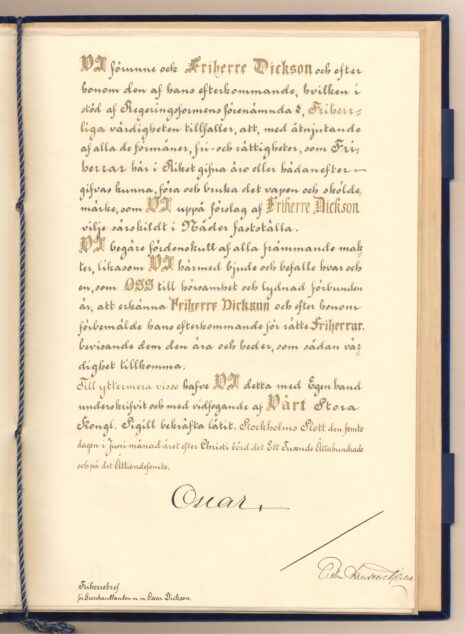 VI förunne ock Friherre Dickson och efter
honom den af hans efterkommande, hvilken i
stöd af Regeringsformens förenämnda §, Friherr-
liga värdigheten tillfaller, att, med åtnjutande
af alla de förmåner, fri- och rättigheter, som Fri-
herrar här i Riket gifna äro eller hädanefter
gifvas kunna, föra och bruka det vapen och skölde-
märke, som VI uppå förslag af Friherre Dickson
vilje särskildt i Nåder fastställa.
VI begäre fördenskull af alla främmande mak-
ter, likasom VI härmed bjude och befalle hvar och
en, som OSS till hörsamhet och lydnad förbunden
är, att erkänna Friherre Dickson och efter honom
förbemälde hans efterkommande för rätte Friherrar,
bevisande dem den ära och heder, som sådan vär-
dighet tillkomma.
Till yttermera visso hafve VI detta med Egen hand
underskrifvit och med vidfogande af Vårt Stora
Kongl. Sigill bekräfta låtit. Stockholms Slott den femte
dagen i Juni månad året efter Christi börd det Ett Tusende Åttahundrade
och på det Åttiondefemte.
Oscar.
Friherrebref
för Grosshandlanden m. m. Oscar Dickson.